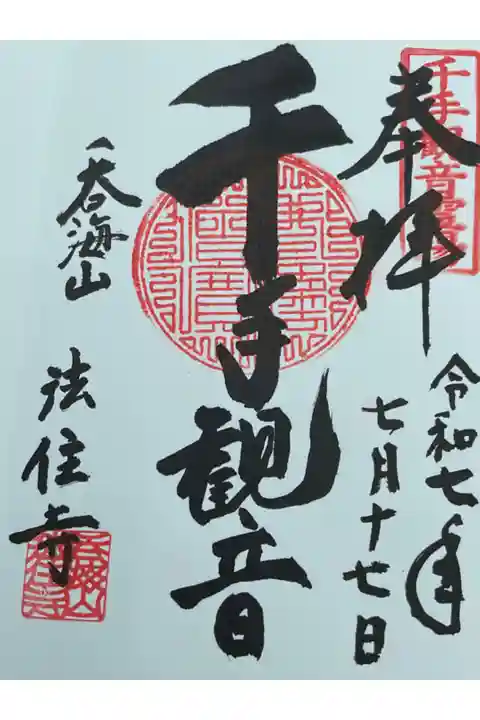 千手観音霊場
奉拝
令和七年
七月十七日
千手観音
吞海山
法住寺